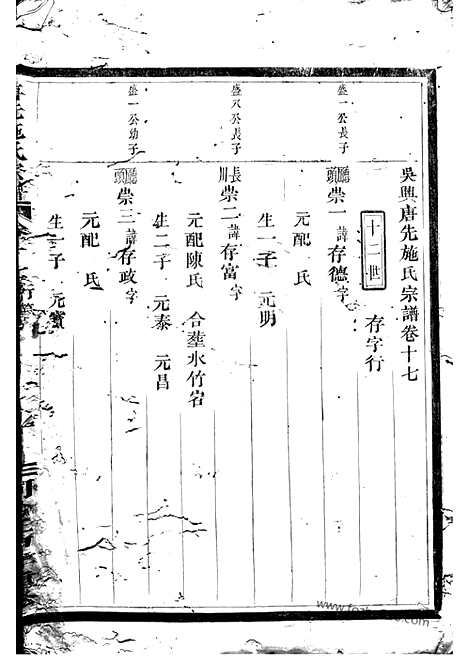 吳興唐先施氏宗譜卷十七
十二世 存字行
盛一公長子
廳頭 崇一 諱存德字
元配 氏
生一子 元明
盛八公長子
崇二 諱存富字
元配陳氏 合塟水竹宕
生二子 元泰 元昌
盛一公幼子
廳頭 崇三 諱存政字
元配 氏
生一子 元賓